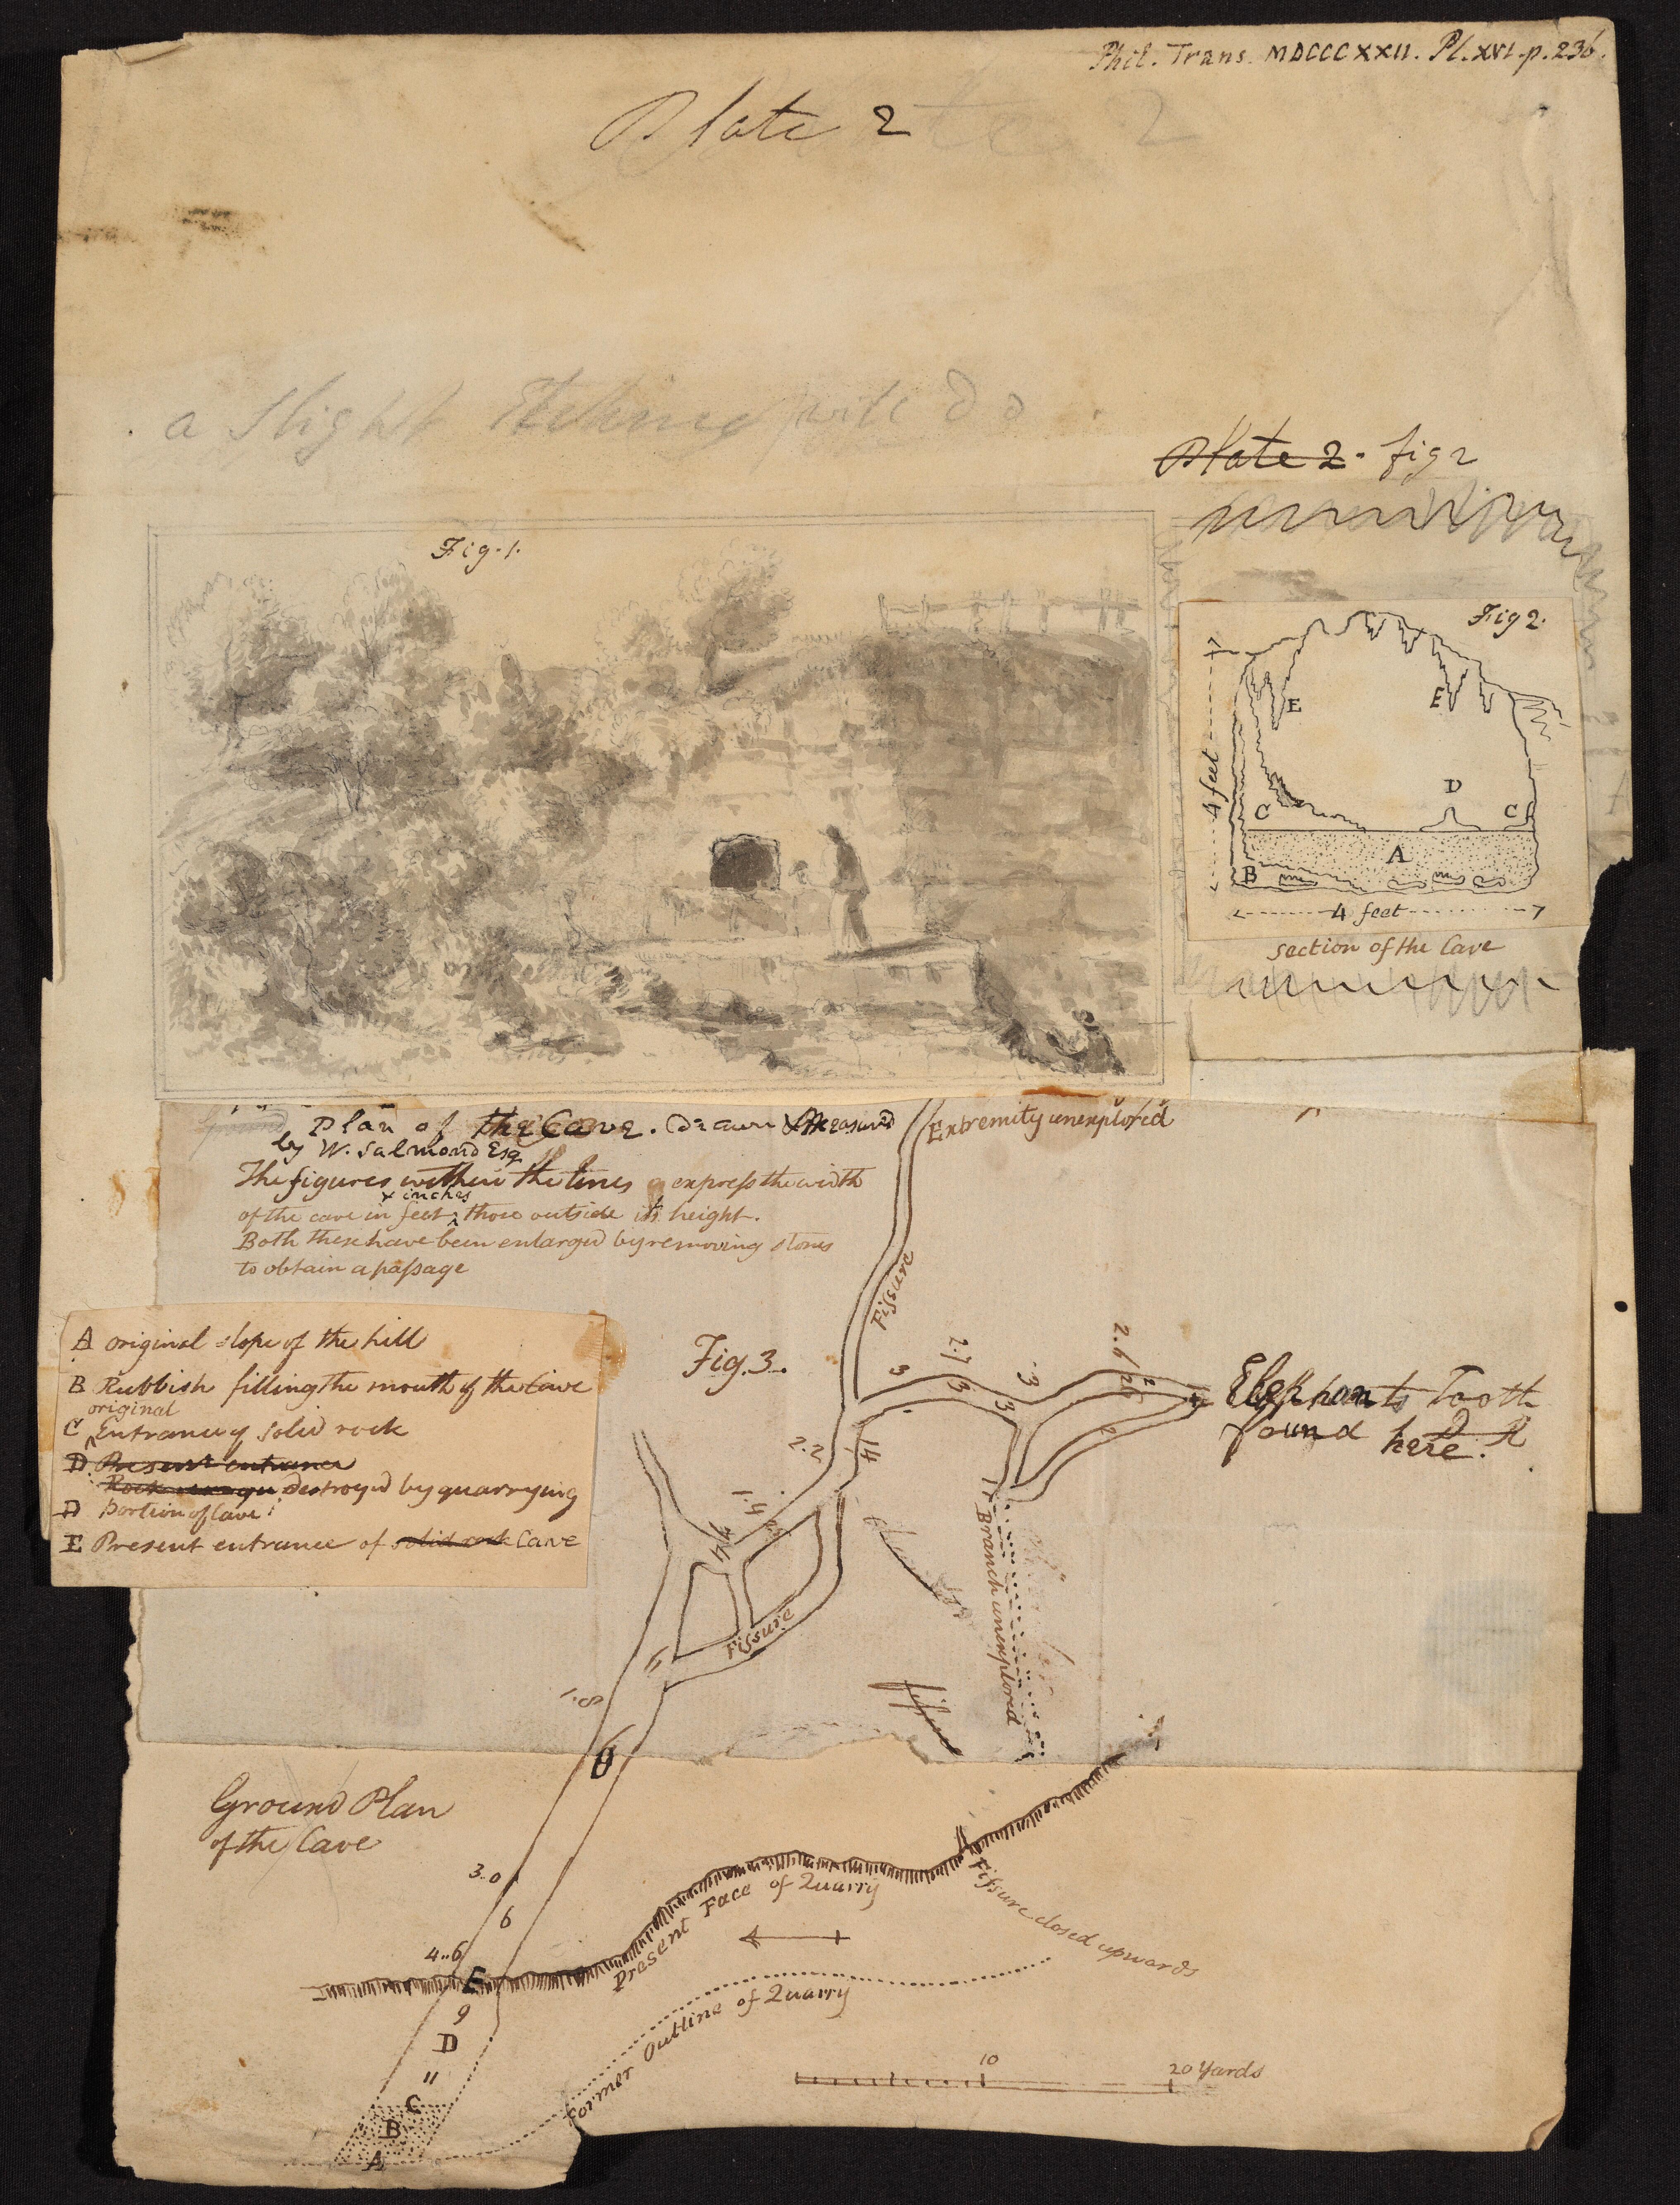 Phil. Trans. MDCCCXXII. Pl. XVI. p. 236.
Plate 2
2
a slight Etching will do
Plate 2. fig 2
Fig. 1.
Fig 2.
E
E
4 feet
C
D
C
A
B
4 feet
section of the Cave
Plan of the Cave. Drawn & Measured
by W. Salmond Esq
The figures within the lines express the width
of the cave in feet & inches those outside its height.
Both these have been enlarged by removing stones
to obtain a passage
Extremity unexplored
Fissure
A original slope of the hill
B Rubbish filling the mouth of the Cave
C original Entrance of solid rock
D Present entrance
destroyed by quarrying
D portion of Cave
E Present entrance of solid rock Cave
Fig. 3.
3
2.7
3
3
3
2.6
2
Elephants Tooth
found here.
2.2
14
1.9
Fissure
Branch unexplored
1.8
6
fissure
Ground Plan
of the Cave
3..0
6
4..6
E
9
D
11
C
B
A
Present Face of Quarry
Fissure closed upwards
Former Outline of Quarry
10
20 Yards